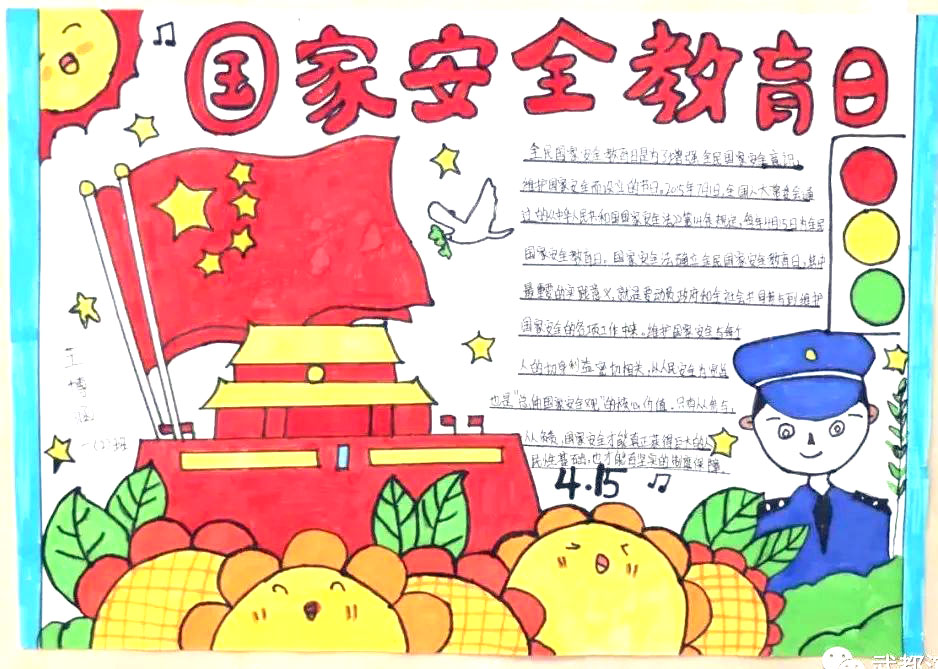 国家安全教育日
全民国家安全教育日是为了增强全民国家安全意识,
维护国家安全而设立的节日。2015年7月1日,全国人大常委会通
过的《中华人民共和国国家安全法》第14条规定,每年4月15日为全民
国家安全教育日。国家安全法确立全民国家安全教育日,其中
最重要的实践意义,就是要动员政府和全社会共同参与到维护
国家安全的各项工作中来。维护国家安全与每个
人的切身利益密切相关,从人民安全为宗旨
也是“总体国家安全观”的核心价值。只有人人参与,
人人负责,国家安全才能真正获得巨大的人
民性基础,也才能有坚实的制度保障
4.15
王博
一(2)班
武都